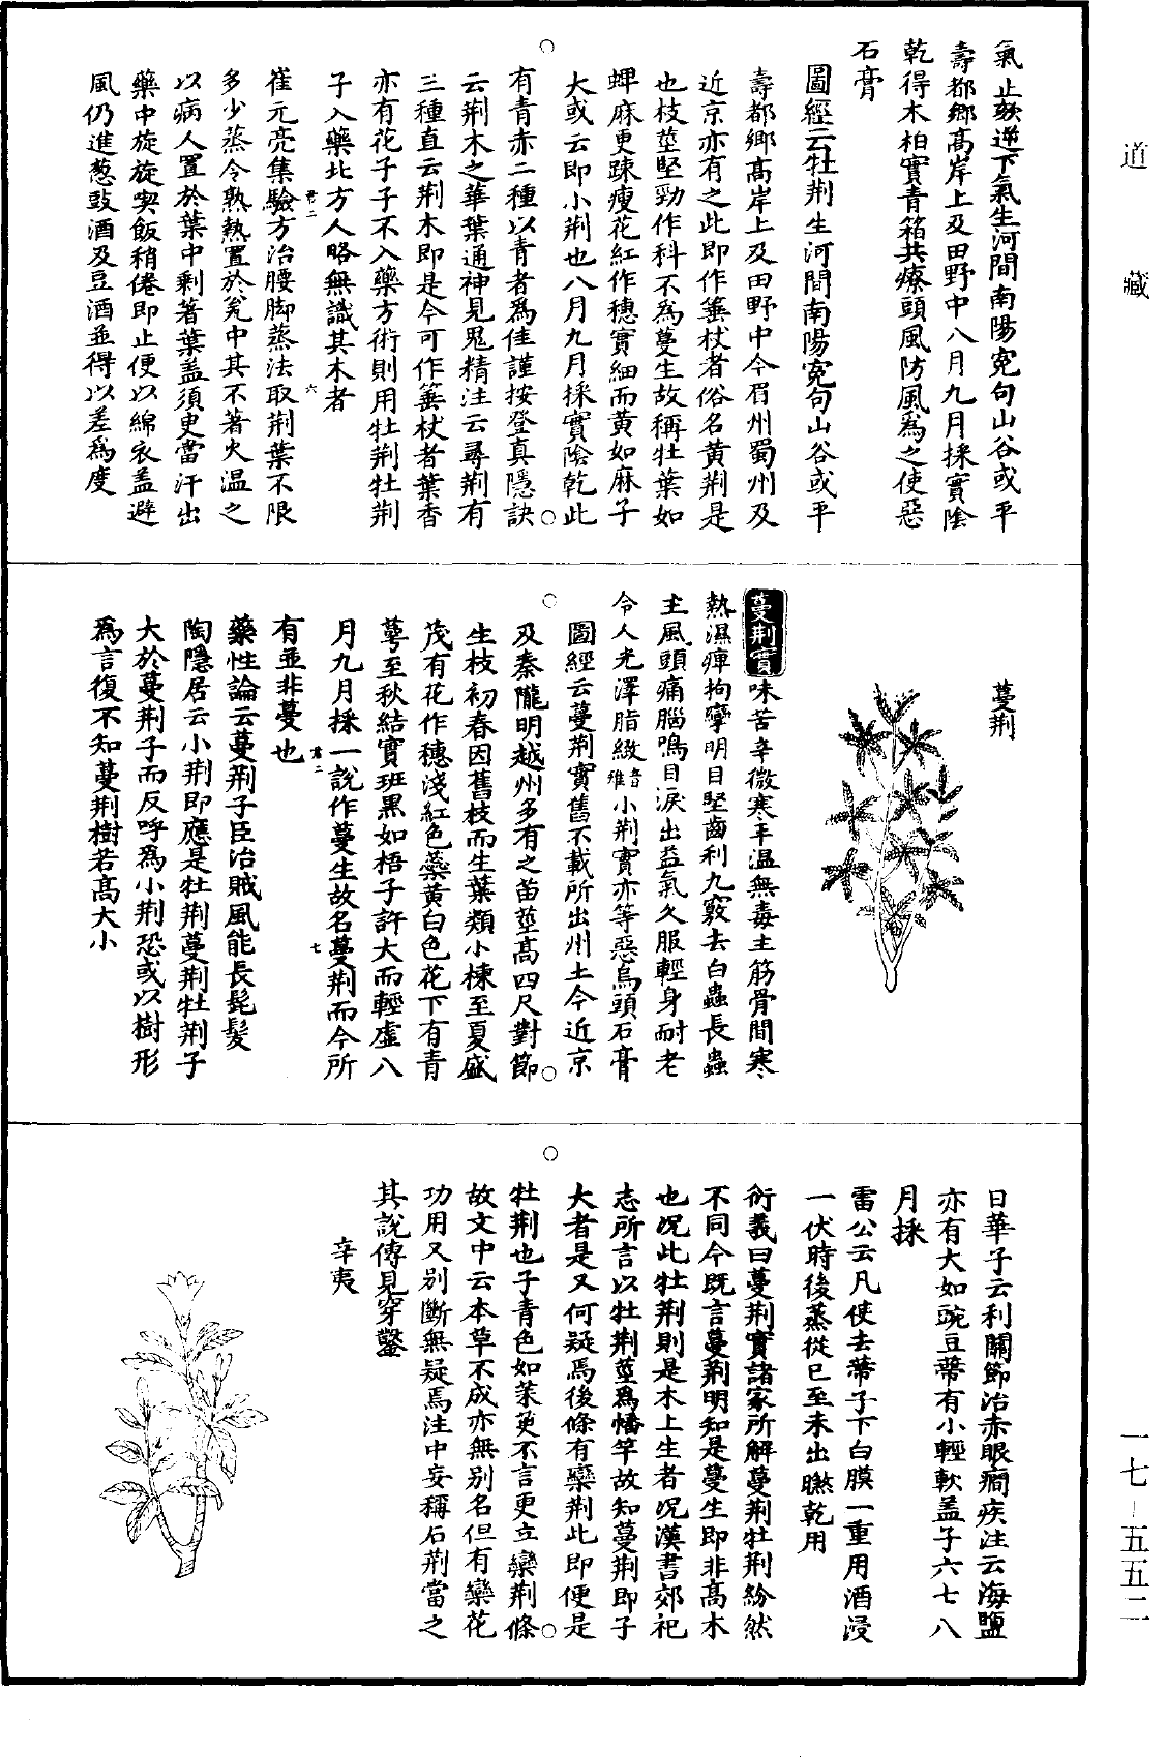 道藏
氣止欬逆下氣生河間南陽冤句山谷或平
壽都鄉高岸上及田野中八月九月採實陰
乾得木柏實青葙共療頭風防風爲之使惡
石膏
圖經云牡荆生河間南陽冤句山谷或平
壽都鄉高岸上及田野中今眉州蜀州及
近京亦有之此即作箠杖者俗名黄荆是
也枝莖堅勁作科不爲蔓生故稱牡葉如
蜱麻更踈瘦花紅作穗實細而黄如麻子
大或云即小荆也八月九月採實陰乾此
有青赤二種以青者爲佳謹按登真隱訣
云荆木之華葉通神見鬼精注云尋荆有
三種直云荆木即是今可作箠杖者葉香
亦有花子子不入藥方術則用牡荆牡荆
子入藥北方人略無識其木者
崔元亮集驗方治腰脚蒸法取荆葉不限
多少蒸令熟熱置於瓮中其下著火温之
以病人置於葉中剩著葉蓋須臾當汗出
藥中旋旋喫飯稍倦即止便以綿衣蓋避
風仍進葱豉酒及豆酒並得以差爲度
蔓荆
蔓荆實味苦辛微寒平温無毒主筋骨間寒
熱濕痺拘攣明目堅齒利九竅去白蟲長蟲
主風頭痛腦鳴目淚出益氣久服輕身耐老
令人光澤脂緻音稚小荆實亦等惡烏頭石膏
圖經云蔓荆實舊不載所出州土今近京
及秦隴明越州多有之苗莖高四尺對節
生枝初春因舊枝而生葉類小楝至夏盛
茂有花作穗淺紅色蘂黄白色花下有青
萼至秋結實班黑如梧子許大而輕虛八
月九月採一說作蔓生故名蔓荆而今所
有並非蔓也
藥性論云蔓荆子臣治賊風能長髭髮
陶隱居云小荆即應是牡荆蔓荆牡荆子
大於蔓荆子而反呼爲小荆恐或以樹形
爲言復不知蔓荆樹若高大小
日華子云利關節治赤眼癇疾注云海鹽
亦有大如豌豆蔕有小輕軟蓋子六七八
月採
雷公云凡使去蔕子下白膜一重用酒浸
一伏時後蒸從巳至未出㬠乾用
衍義曰蔓荆實諸家所解蔓荆牡荆紛然
不同今既言蔓荆明知是蔓生即非高木
也況此牡荆則是木上生者况漢書郊祀
志所言以牡荆莖爲幡竿故知蔓荆即子
大者是又何疑焉後條有欒荆此即便是
牡荆也子青色如茱萸不言更立欒荆條
故文中云本草不成亦無别名但有欒花
功用又别斷無疑焉注中妄稱石荆當之
其說傳見穿鑿
辛夷
一七-五五二